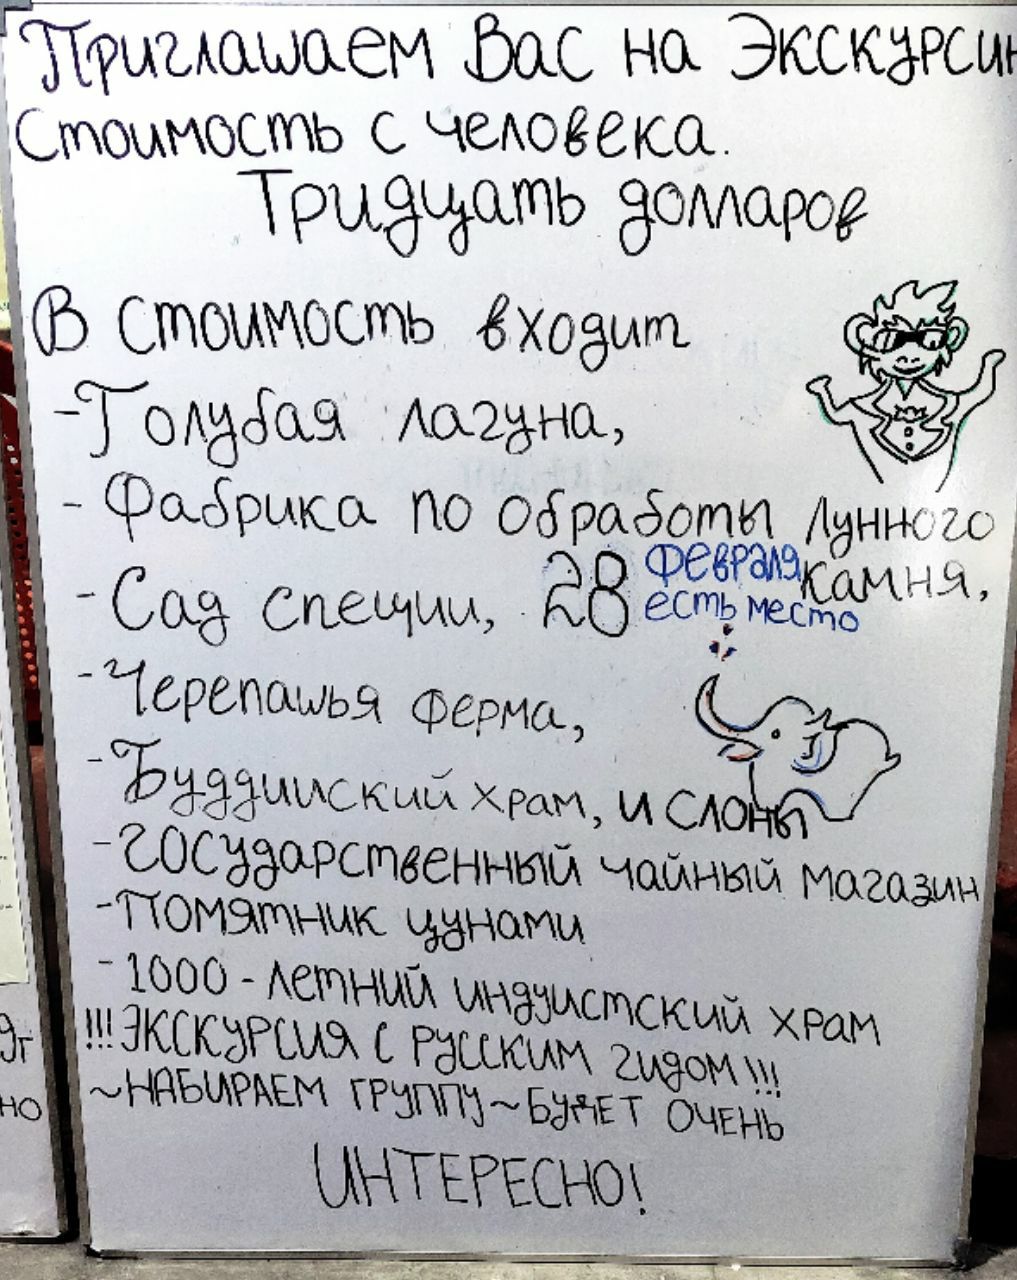 Приглашаем Вас на Экскурси
Стоимость с человека.
Тридцать долларов
В стоимость входит
-Голубая лагуна,
- Фабрика по обработы Лунного
камня,
- Сад специи,
28 февраля
есть место
- Черепашья ферма,
- Буддииский храм, и слоны
- государственный чайный магазин
- Помятник цунами
- 1000 - летний индуистский храм
!!! Экскурсия с русским гидом !!!
~НАБИРАЕМ ГРУППУ~БУДЕТ ОЧЕНЬ
ИНТЕРЕСНО!
но